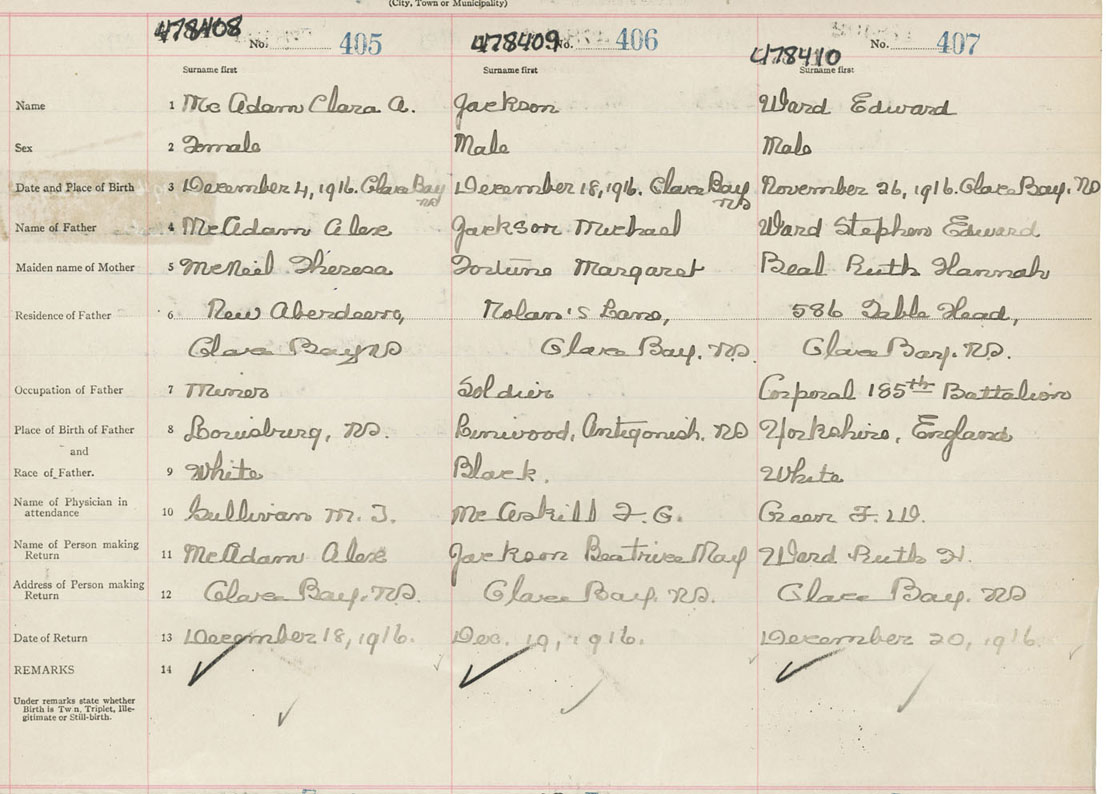 (City, Town or Municipality)
478408 No. 405 478409 No. 406 478410 No. 407
Surname first Surname first Surname first
Name 1 Mc Adam Clara A. Jackson Ward Edward
Sex 2 Female Male Male
Date and Place of Birth 3 December 4, 1916. Glace Bay NS December 18, 1916. Glace Bay NS November 26, 1916. Glace Bay. NS
Name of Father 4 McAdam Alex Jackson Michael Ward Stephen Edward
Maiden name of Mother 5 McNeil Theresa Fortune Margaret Beal Ruth Hannah
Residence of Father 6 New Aberdeen, Nolan's Lane, 586 Table Head,
Glace Bay NS Glace Bay. NS Glace Bay. NS.
Occupation of Father 7 Miner Soldier Corporal 185th Battalion
Place of Birth of Father 8 Louisburg, NS. Linwood, Antigonish. NS Yorkshire, England
and
Race of Father. 9 White Black. White
Name of Physician in
attendance 10 Sullivan M. T. McAskill F. G. Green F. W.
Name of Person making
Return 11 McAdam Alex Jackson Beatrice May Ward Ruth H.
Address of Person making
Return 12 Glace Bay. NS. Glace Bay. NS. Glace Bay. NS
Date of Return 13 December 18, 1916. Dec. 19, 1916. December 20, 1916.
REMARKS 14
Under remarks state whether
Birth is Twin, Triplet, Ille-
gitimate or Still-birth.